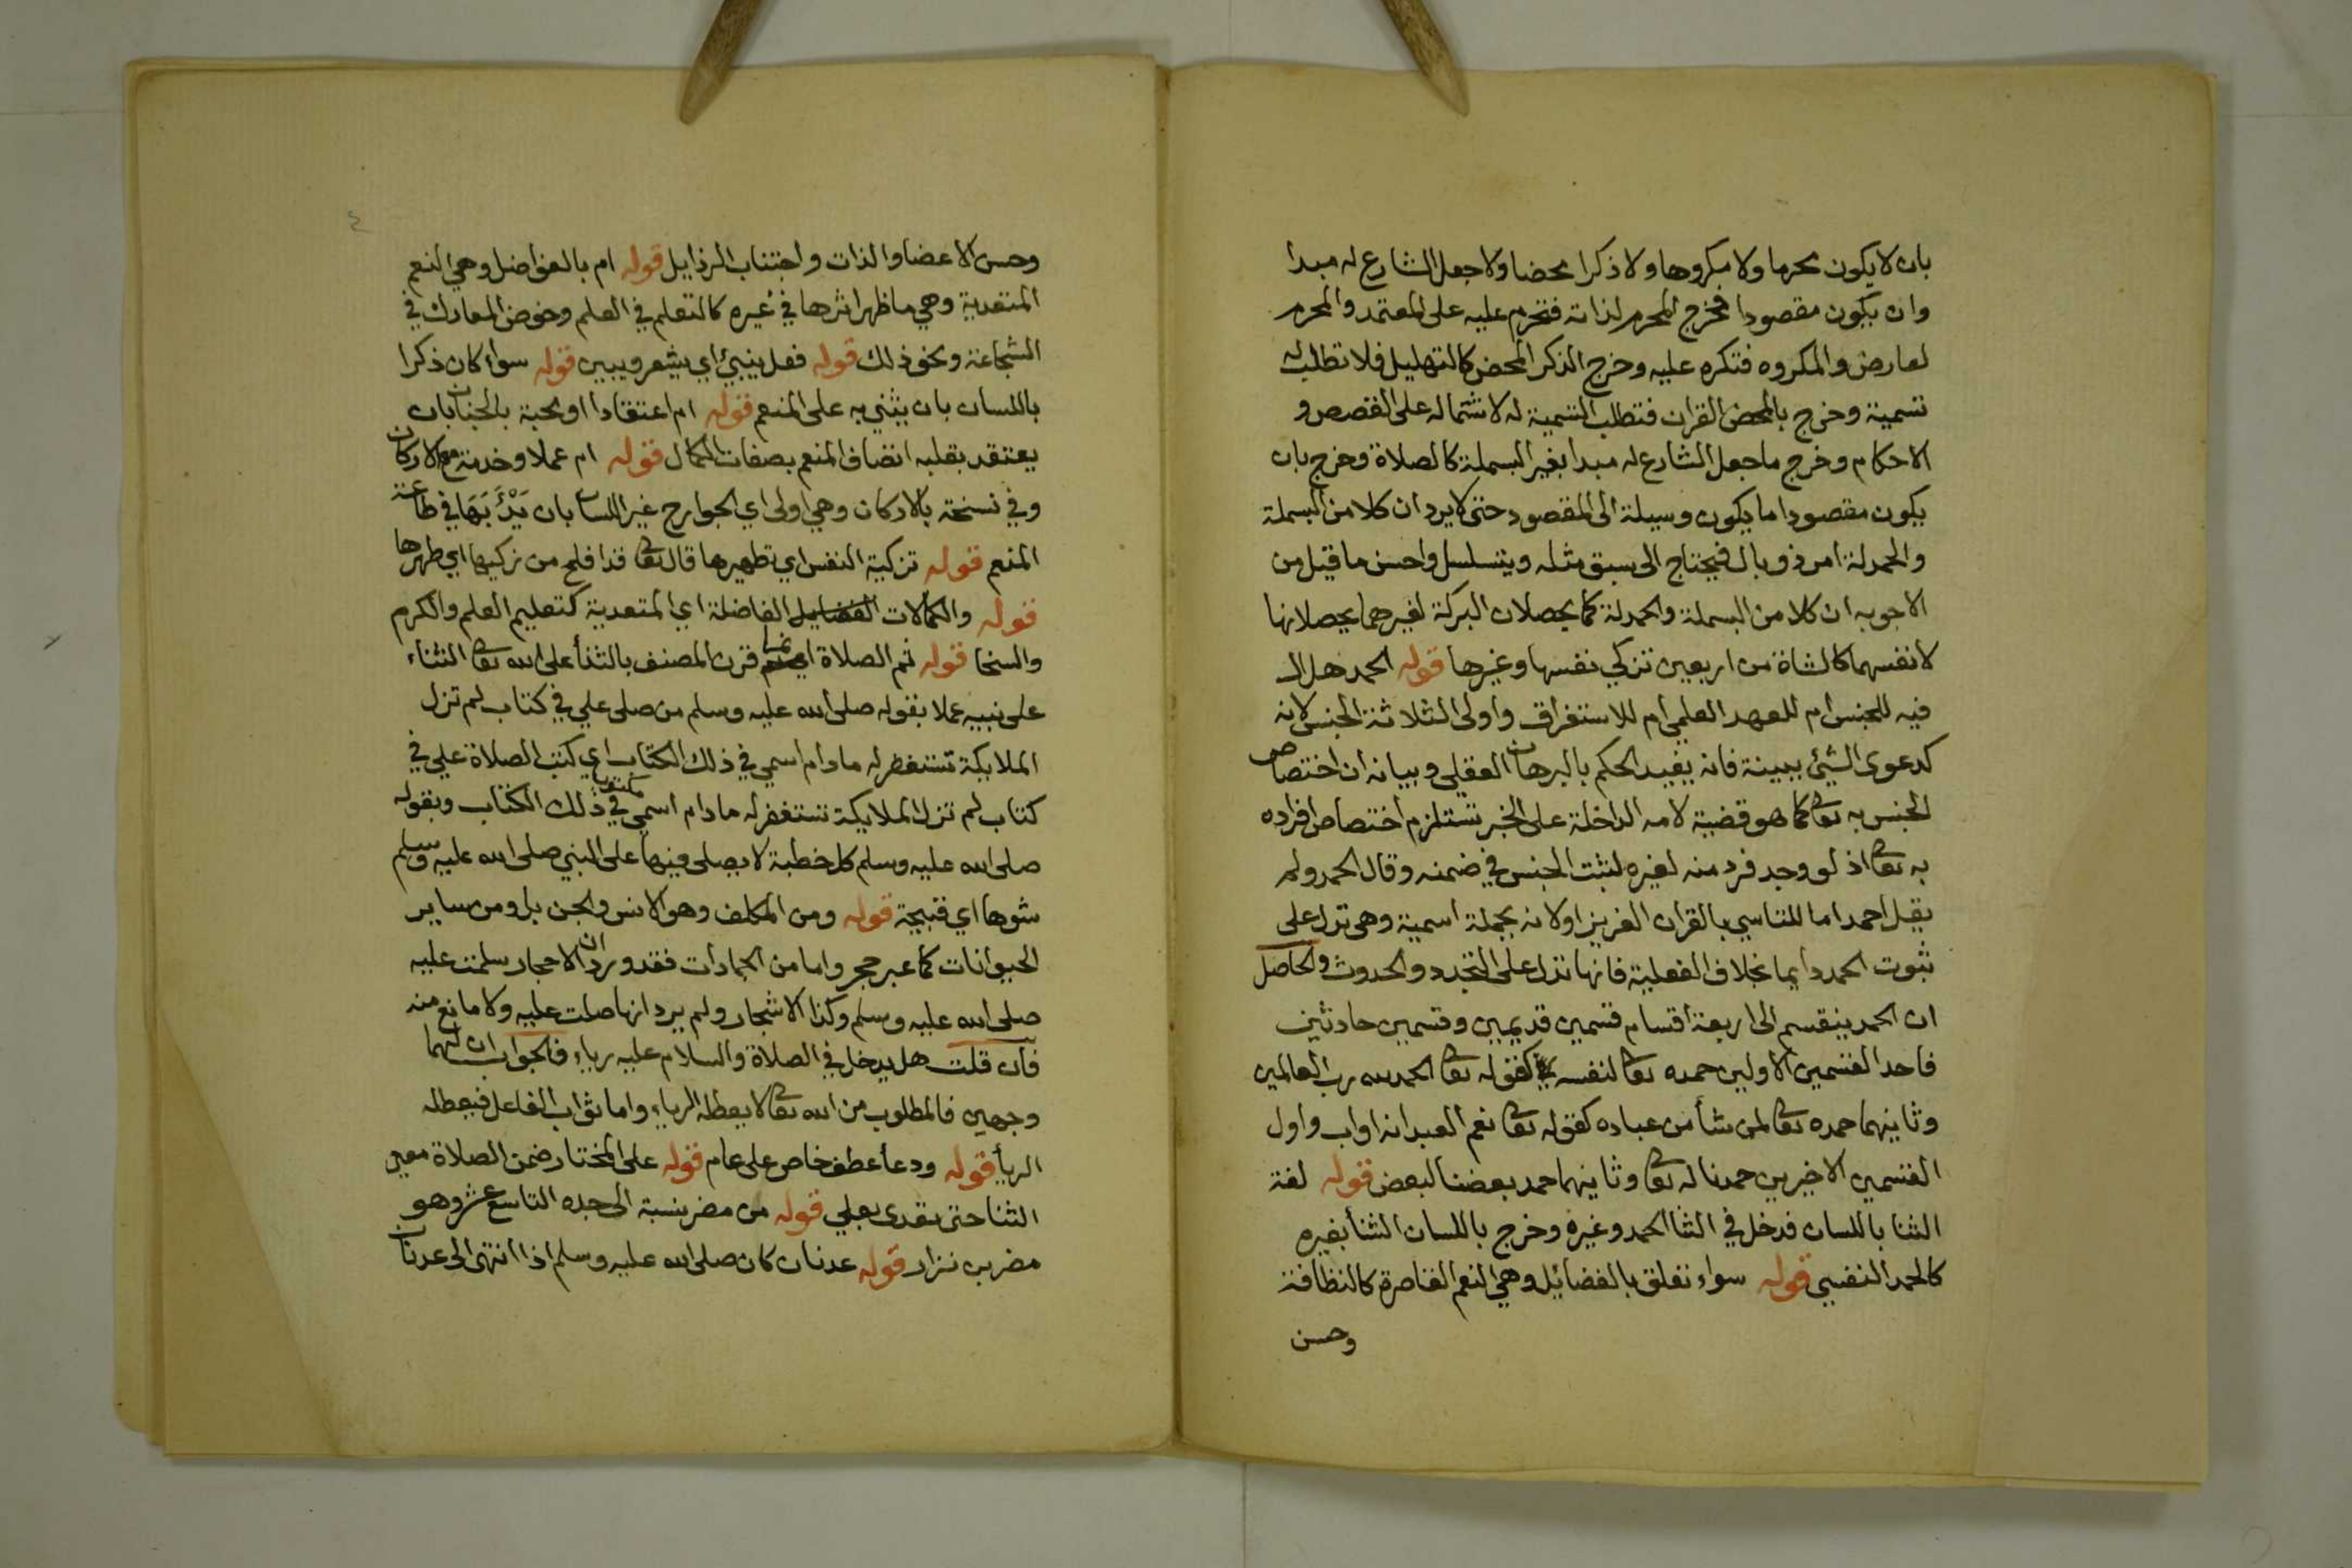 بان لا يكون محرما ولا مكروها ولا ذكرا محضا ولا جعل الشارع له مبدا
وان يكون مقصودا فخرج المحرم لذاته فتحرم عليه على المعتمد والمحرم
لعارض والمكروه فتكره عليه وخرج الذكر المحض كالتهليل فلا تطلب له
تسمية وخرج بالمحض القران فتطلب التسمية له لاشتماله على القصص و
الاحكام وخرج ما جعل الشارع له مبدا بغير البسملة كالصلاة وخرج بان
يكون مقصودا ما يكون وسيلة الى المقصود حتى لا يرد ان كلا من البسملة
والحمدلة امر ذو بال فيحتاج الى سبق مثله ويتسلسل واحسن ما قيل من
الاجوبه ان كلا من البسملة والحمدلة كما يحصلان البركة لغيرهما يحصلانها
لانفسهما كالشاة من اربعين تزكي نفسها وغيرها قوله الحمد هل ال
فيه للجنس ام للعهد العلمي ام للاستغراق واولى الثلاثة الجنس لانه
كدعوى الشيئ ببينة فانه يفيد الحكم بالبرهان العقلي وبيانه ان اختصاص
الجنس به تعالى كما هو قضية لامه الداخلة على الخبر تستلزم اختصاص افراده
به تعالى اذ لو وجد فرد منه لغيره لثبت الجنس في ضمنه وقال الحمد ولم
يقل احمد اما للتاسي بالقران العزيز اولانه بجملة اسمية وهي تدل على
ثبوت الحمد دايما بخلاف الفعلية فانها تدل على التجدد والحدوث والحاصل
ان الحمد ينقسم الى اربعة اقسام قسمين قديمين وقسمين حادثين
فاحد القسمين الاولين حمده تعالى لنفسه كقوله تعالى الحمد لله رب العالمين
وثانيهما حمده تعالى لمن شأ من عباده كقوله تعالى نعم العبد انه اواب واول
القسمين الاخيرين حمدنا له تعالى وثانيهما حمد بعضنا لبعض قوله لغة
الثنا باللسان فدخل في الثنا الحمد وغيره وخرج باللسان الثنأ بغيره
كالحمد النفسي قوله سواء تعلق بالفضائيل وهي النعم القاصرة كالنظافة
وحسن
وحسن الاعضا والذات واجتناب الرذايل قوله ام بالفواضل وهي النعم
المتعدية وهي ما ظهر اثرها في غيره كالتعلم في العلم وخوض المعارك في
الشجاعة ونحو ذلك قوله فعل ينبئ اي يشعر ويبين قوله سواء كان ذكرا
باللسان بان يثني به على المنعم قوله ام اعتقادا او محبة بالجنان بان
يعتقد بقلبه اتصاف المنعم بصفات الكمال قوله ام عملا وخدمة مع الاركان
وفي نسخة بالاركان وهي اولى اي الجوارح غير اللسان بان يدئبها في طاعة
المنعم قوله تزكية النفس اي تطهيرها قال تعالى قد افلح من زكيها اي طهرها
قوله والكمالات الفضايل الفاضلة اي المتعدية كتعليم العلم والكرم
والسخا قوله ثم الصلاة قرن المصنف بالثنأ على الله تعالى الثناء
على نبيه عملا بقوله صلى الله عليه وسلم من صلى علي في كتاب لم تزل
الملايكة تستغفر له ما دام اسمي في ذلك الكتاب اي كتب الصلاة علي في
كتاب لم تزل الملايكة تستغفر له ما دام اسمي مكتوبا في ذلك الكتاب وبقوله
صلى الله عليه وسلم كل خطبة لا يصلى فيها على النبي صلى الله عليه وسلم
شوها اي قبيحة قوله ومن المكلف وهو الانس والجن بل ومن ساير
الحيوانات كما عبر حجر واما من الجمادات فقد ورد ان الاحجار سلمت عليه
صلى الله عليه وسلم وكذا الاشجار ولم يرد انها صلت عليه ولا مانع منه
فان قلت هل يدخل في الصلاة والسلام عليه رياء فالجواب ان لهما
وجهين فالمطلوب من الله تعالى لا يعطله الرياء واما ثواب الفاعل فيعطله
الريأ قوله ودعأ عطف خاص على عام قوله على المختار ضمن الصلاة معنى
الثنا حتى تعدى بعلى قوله من مضر نسبة الى جده التاسع عشر وهو
مضر بن نزار قوله عدنان كان صلى الله عليه وسلم اذا انتهى الى عدنان